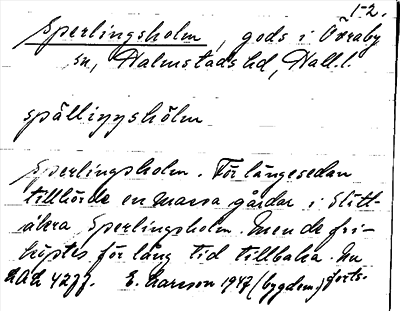 1-2.
Sperlingsholm, gods i Övraby
sn, Halmstads hd, Hall. l.
spällinṣhölm
Sperlingsholm. För längesedan
tillhörde en massa gårdar i Slött-
åkra Sperlingsholm. Men de fri-
köptes för lång tid tillbaka. Nu
LAL 4277. E. Larsson 1947 (bygdem.) forts.